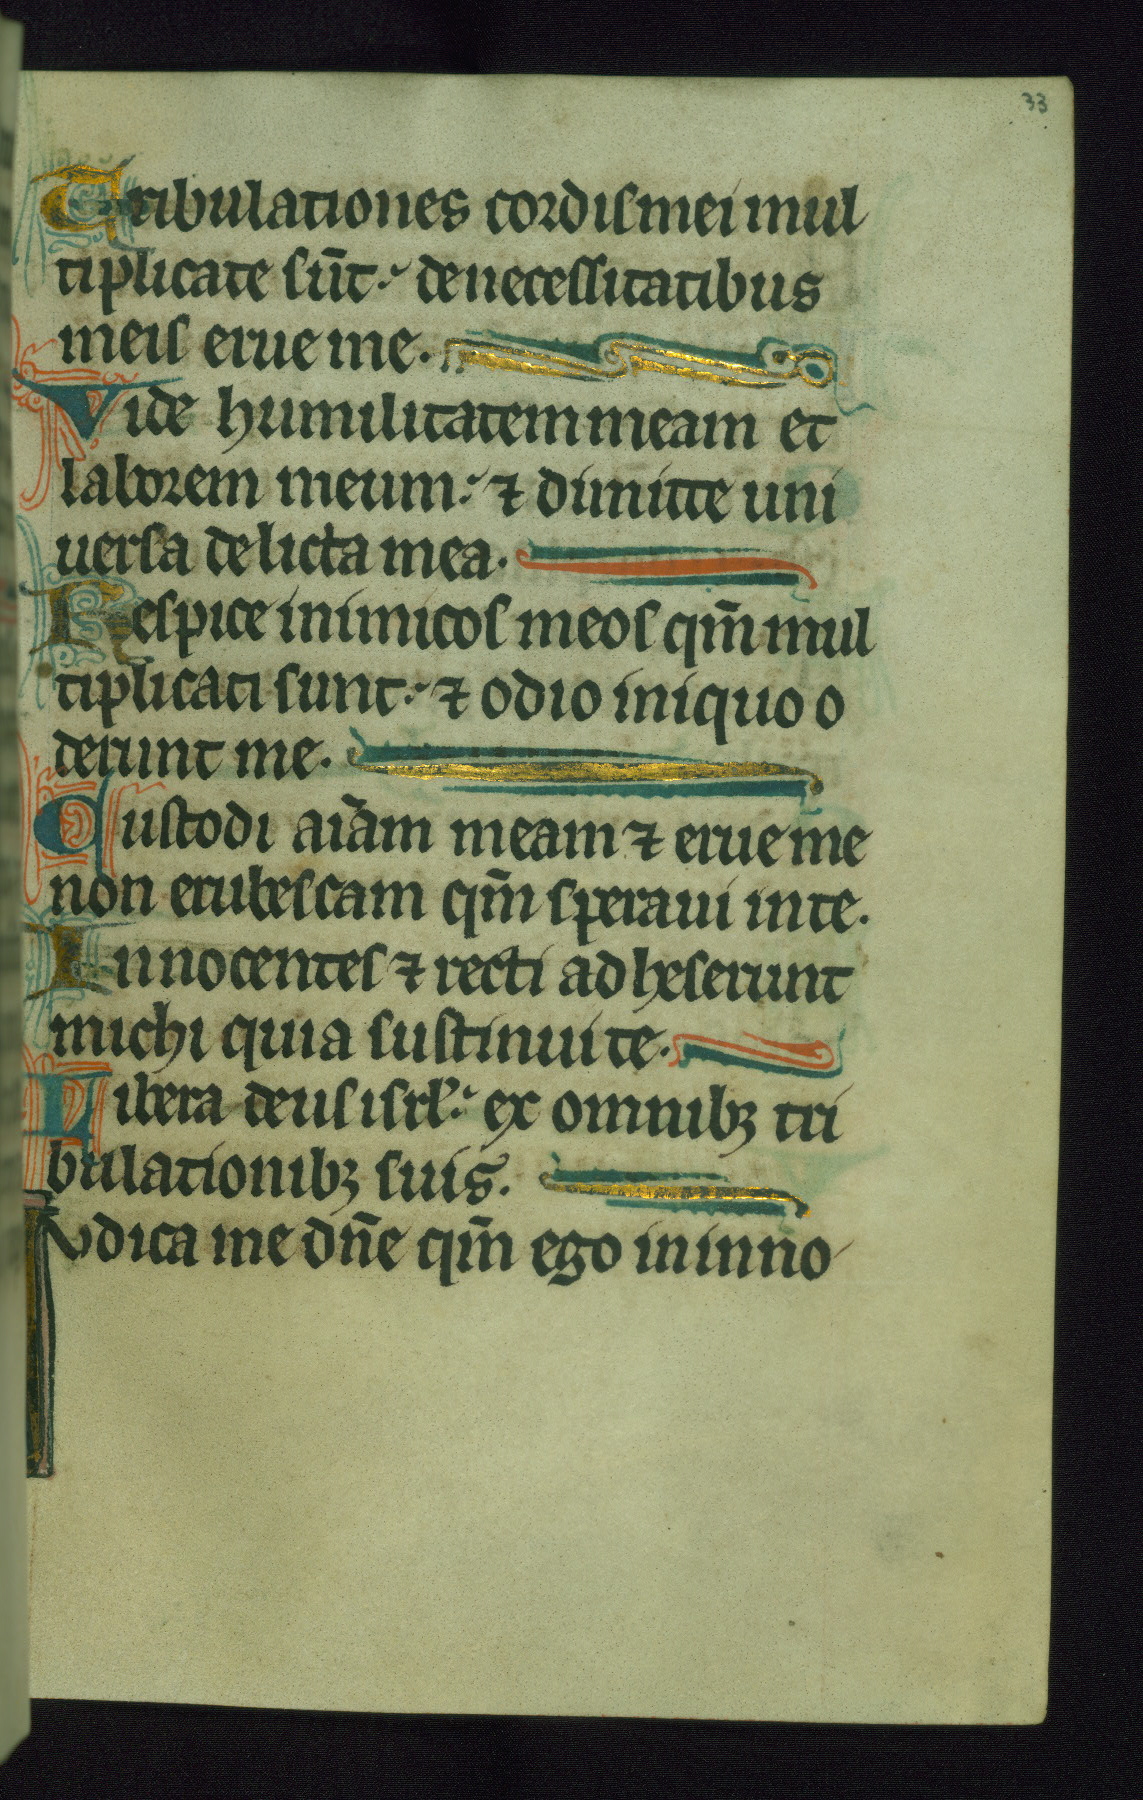 33
Tribulationes cordis mei mul
tiplicate su̅t: de necessitatibus
meis erue me.
Vide humilitatem meam et
laborem meum: ⁊ dimitte uni
uersa delicta mea.
Respice inimicos meos qm̅ mul
tiplicati sunt: ⁊ odio iniquo o
derunt me.
Custodi ai̅am meam ⁊ erue me
non erubescam qm̅ speraui in te.
Innocentes ⁊ recti adheserunt
michi quia sustinui te.
Libera deus isrl̅: ex omnibꝫ tri
bulationibꝫ suis.
Iudica me dn̅e qm̅ ego in inno